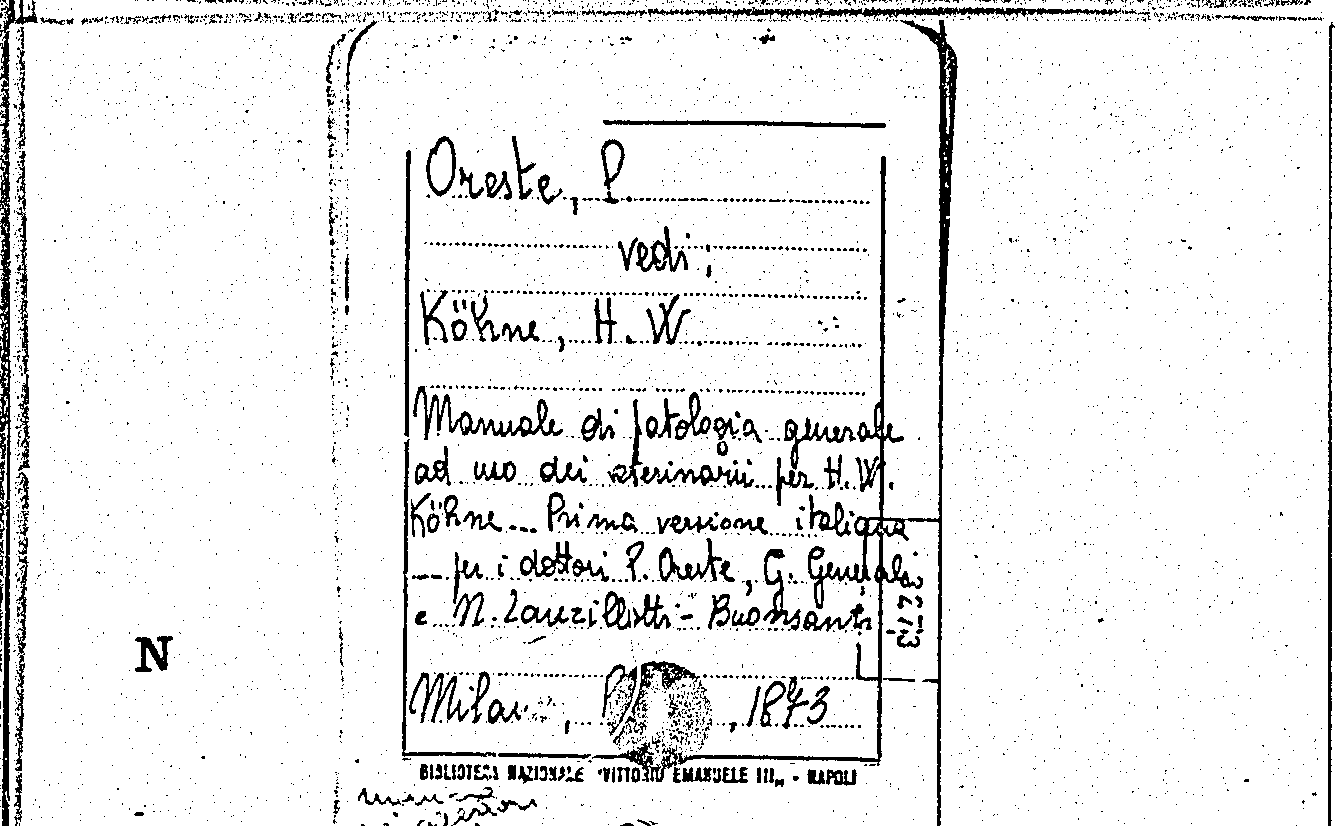 Oreste, P.
vedi:
Köhne, H. W.
Manuale di patologia generale
ad uso dei veterinarii per H. W.
Köhne... Prima versione italiana
... per i dottori P. Oreste, G. Generali
e N. Lanzillotti-Buonsanti
N
Milano, , 1873
BIBLIOTECA NAZIONALE "VITTORIO EMANUELE III" - NAPOLI